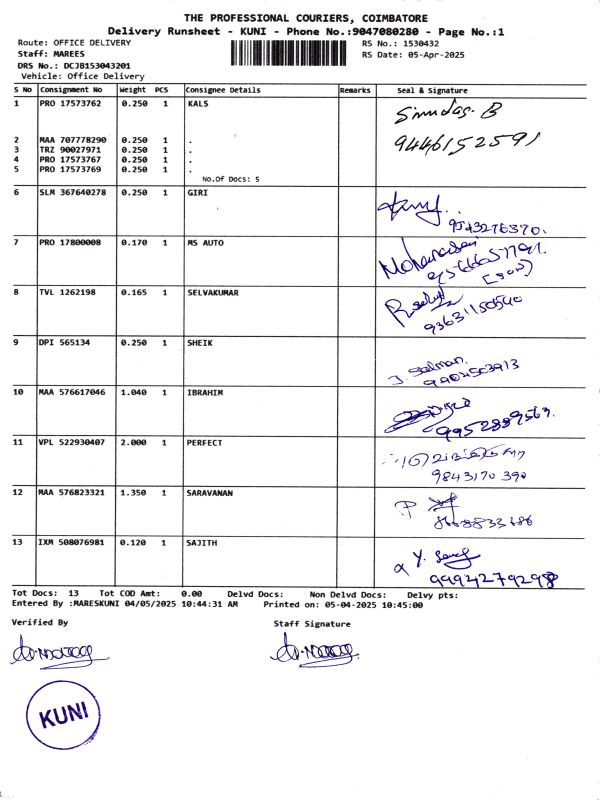 THE PROFESSIONAL COURIERS, COIMBATORE
Delivery Runsheet - KUNI - Phone No.:9047080280 - Page No.:1
Route: OFFICE DELIVERY RS No.: 1530432
Staff: MAREES RS Date: 05-Apr-2025
DRS No.: DCJB153043201
Vehicle: Office Delivery
S No Consignment No Weight PCS Consignee Details Remarks Seal & Signature
1 PRO 17573762 0.250 1 KALS
2 MAA 707778290 0.250 1 . 9446152591
3 TRZ 90027971 0.250 1 .
4 PRO 17573767 0.250 1 .
5 PRO 17573769 0.250 1 .
No.Of Docs: 5
6 SLM 367640278 0.250 1 GIRI
9543276370.
7 PRO 17800008 0.170 1 MS AUTO
8 TVL 1262198 0.165 1 SELVAKUMAR
9363115 0540
9 DPI 565134 0.250 1 SHEIK
J. Salman.
9902503913
10 MAA 576617046 1.040 1 IBRAHIM
11 VPL 522930407 2.000 1 PERFECT
9843170 390
12 MAA 576823321 1.350 1 SARAVANAN
13 IXM 508076981 0.120 1 SAJITH
9994279298
Tot Docs: 13 Tot COD Amt: 0.00 Delvd Docs: Non Delvd Docs: Delvy pts:
Entered By :MARESKUNI 04/05/2025 10:44:31 AM Printed on: 05-04-2025 10:45:00
Verified By Staff Signature
KUNI